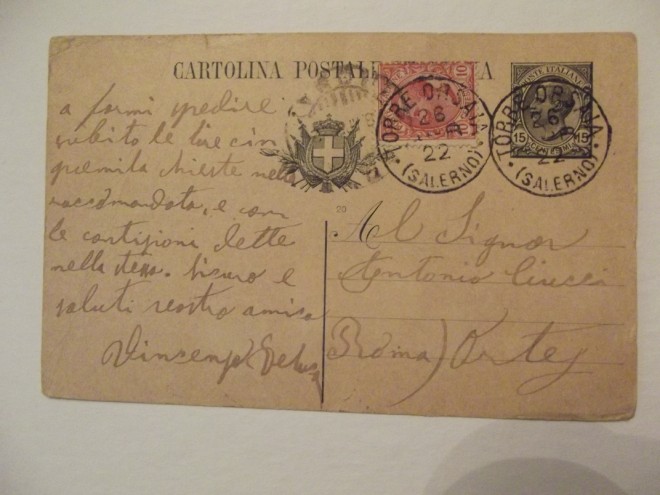 CARTOLINA POSTALE
POSTE ITALIANE
15 15
10
TORRE ORSAIA
26
8
22
(SALERNO)
TORRE ORSAIA
26
8
22
(SALERNO)
20
a farmi spedire
subito le lire cin
quemila chieste nella
raccomandata, e con
le condizioni dette
nella stessa. Sicuro e
saluti vostro amico
Vincenzo
Al Signor
Antonio
(Roma)